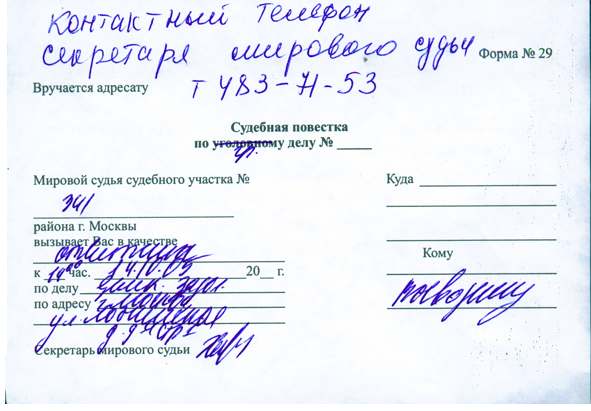 Контактный телефон
секретаря мирового судьи
Форма № 29
Вручается адресату
т 483-71-53
Судебная повестка
по уголовному делу №
гр.
Мировой судья судебного участка №
341
района г. Москвы
вызывает Вас в качестве
ответчика
к час. 14.10.09 20 г.
по делу
по адресу г. Москва
ул.
Секретарь мирового судьи
Куда
Кому